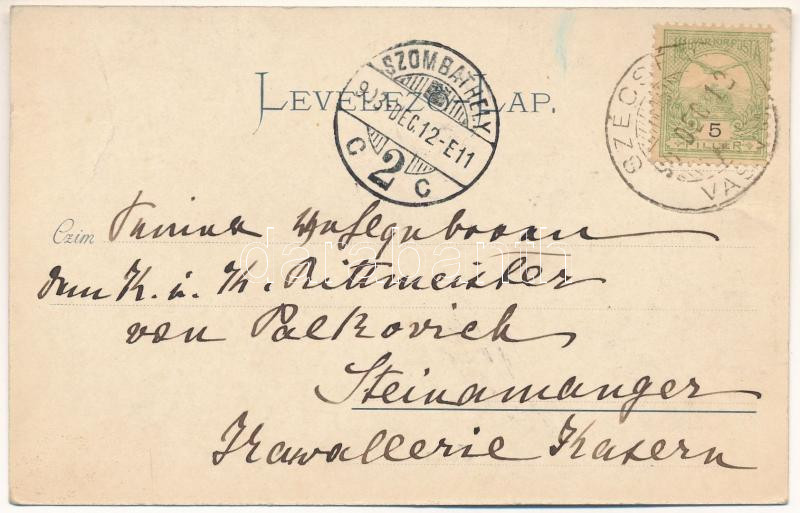 LEVELEZŐ-LAP.
SZOMBATHELY
903 DEC. 12-E11
C 2 C
MAGYAR KIR. POSTA
5
FILLÉR
SZÉCS
VAS
Czim
dem K. u. K. Rittmeister
von Palkovich
Steinamanger
Kawallerie Kasern
darabanth